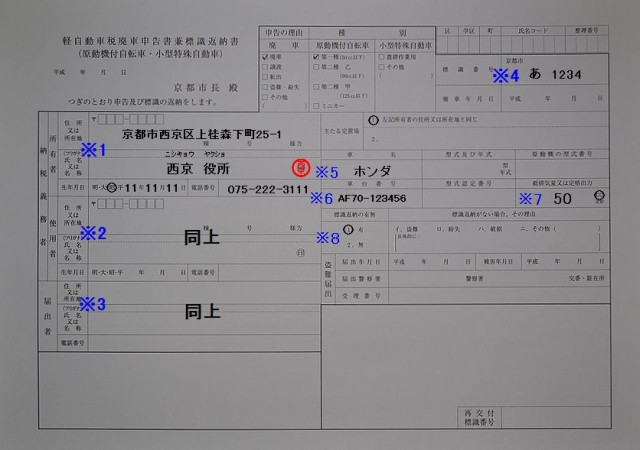 軽自動車税廃車申告書兼標識返納書
（原動機付自転車・小型特殊自動車）
平成　年　月　日
京都市長　殿
つぎのとおり申告及び標識の返納をします。
申告の理由
廃車
廃車
譲渡
転出
盗難・紛失
その他
種　別
原動機付自転車
小型特殊自動車
第一種(50cc以下)
第二種 乙
(90cc以下)
第二種 甲
(125cc以下)
ミニカー
農耕作業用
その他
区
学区
町
氏名コード
整理番号
標識番号
京都市
※4 あ 1234
廃車年月日
平成　年　月　日
納税義務者
所有者
住所
又は
所在地
〒
※1
京都市西京区上桂森下町25-1
種　号　様方
(フリガナ)
氏名
又は
名称
ニシキョウ　ヤクショ
西京 役所
生年月日
明・大・昭・平 11年11月11日
電話番号
075-222-3111
主たる定置場
1. 左記所有者の住所又は所在地と同じ
2.
車名
※5 ホンダ
型式及び年式
型
年式
原動機の型式番号
車台番号
※6 AF70-123456
型式認定番号
総排気量又は定格出力
※7 50
使用者
住所
又は
所在地
〒
※2
同上
種　号　様方
(フリガナ)
氏名
又は
名称
印
生年月日
明・大・昭・平　年　月　日
電話番号
※8
標識返納の有無
1. 有
2. 無
標識返納がない場合、その理由
イ. 盗難
ロ. 紛失
ハ. 破損
ニ. その他（　）
盗難届出
届出年月日
平成　年　月　日
被害年月日
平成　年　月　日
届出警察署
警察署
交番・駐在所
受理番号
届出者
住所
又は
所在地
〒
※3
同上
(フリガナ)
氏名
又は
名称
電話番号
再交付
標識番号